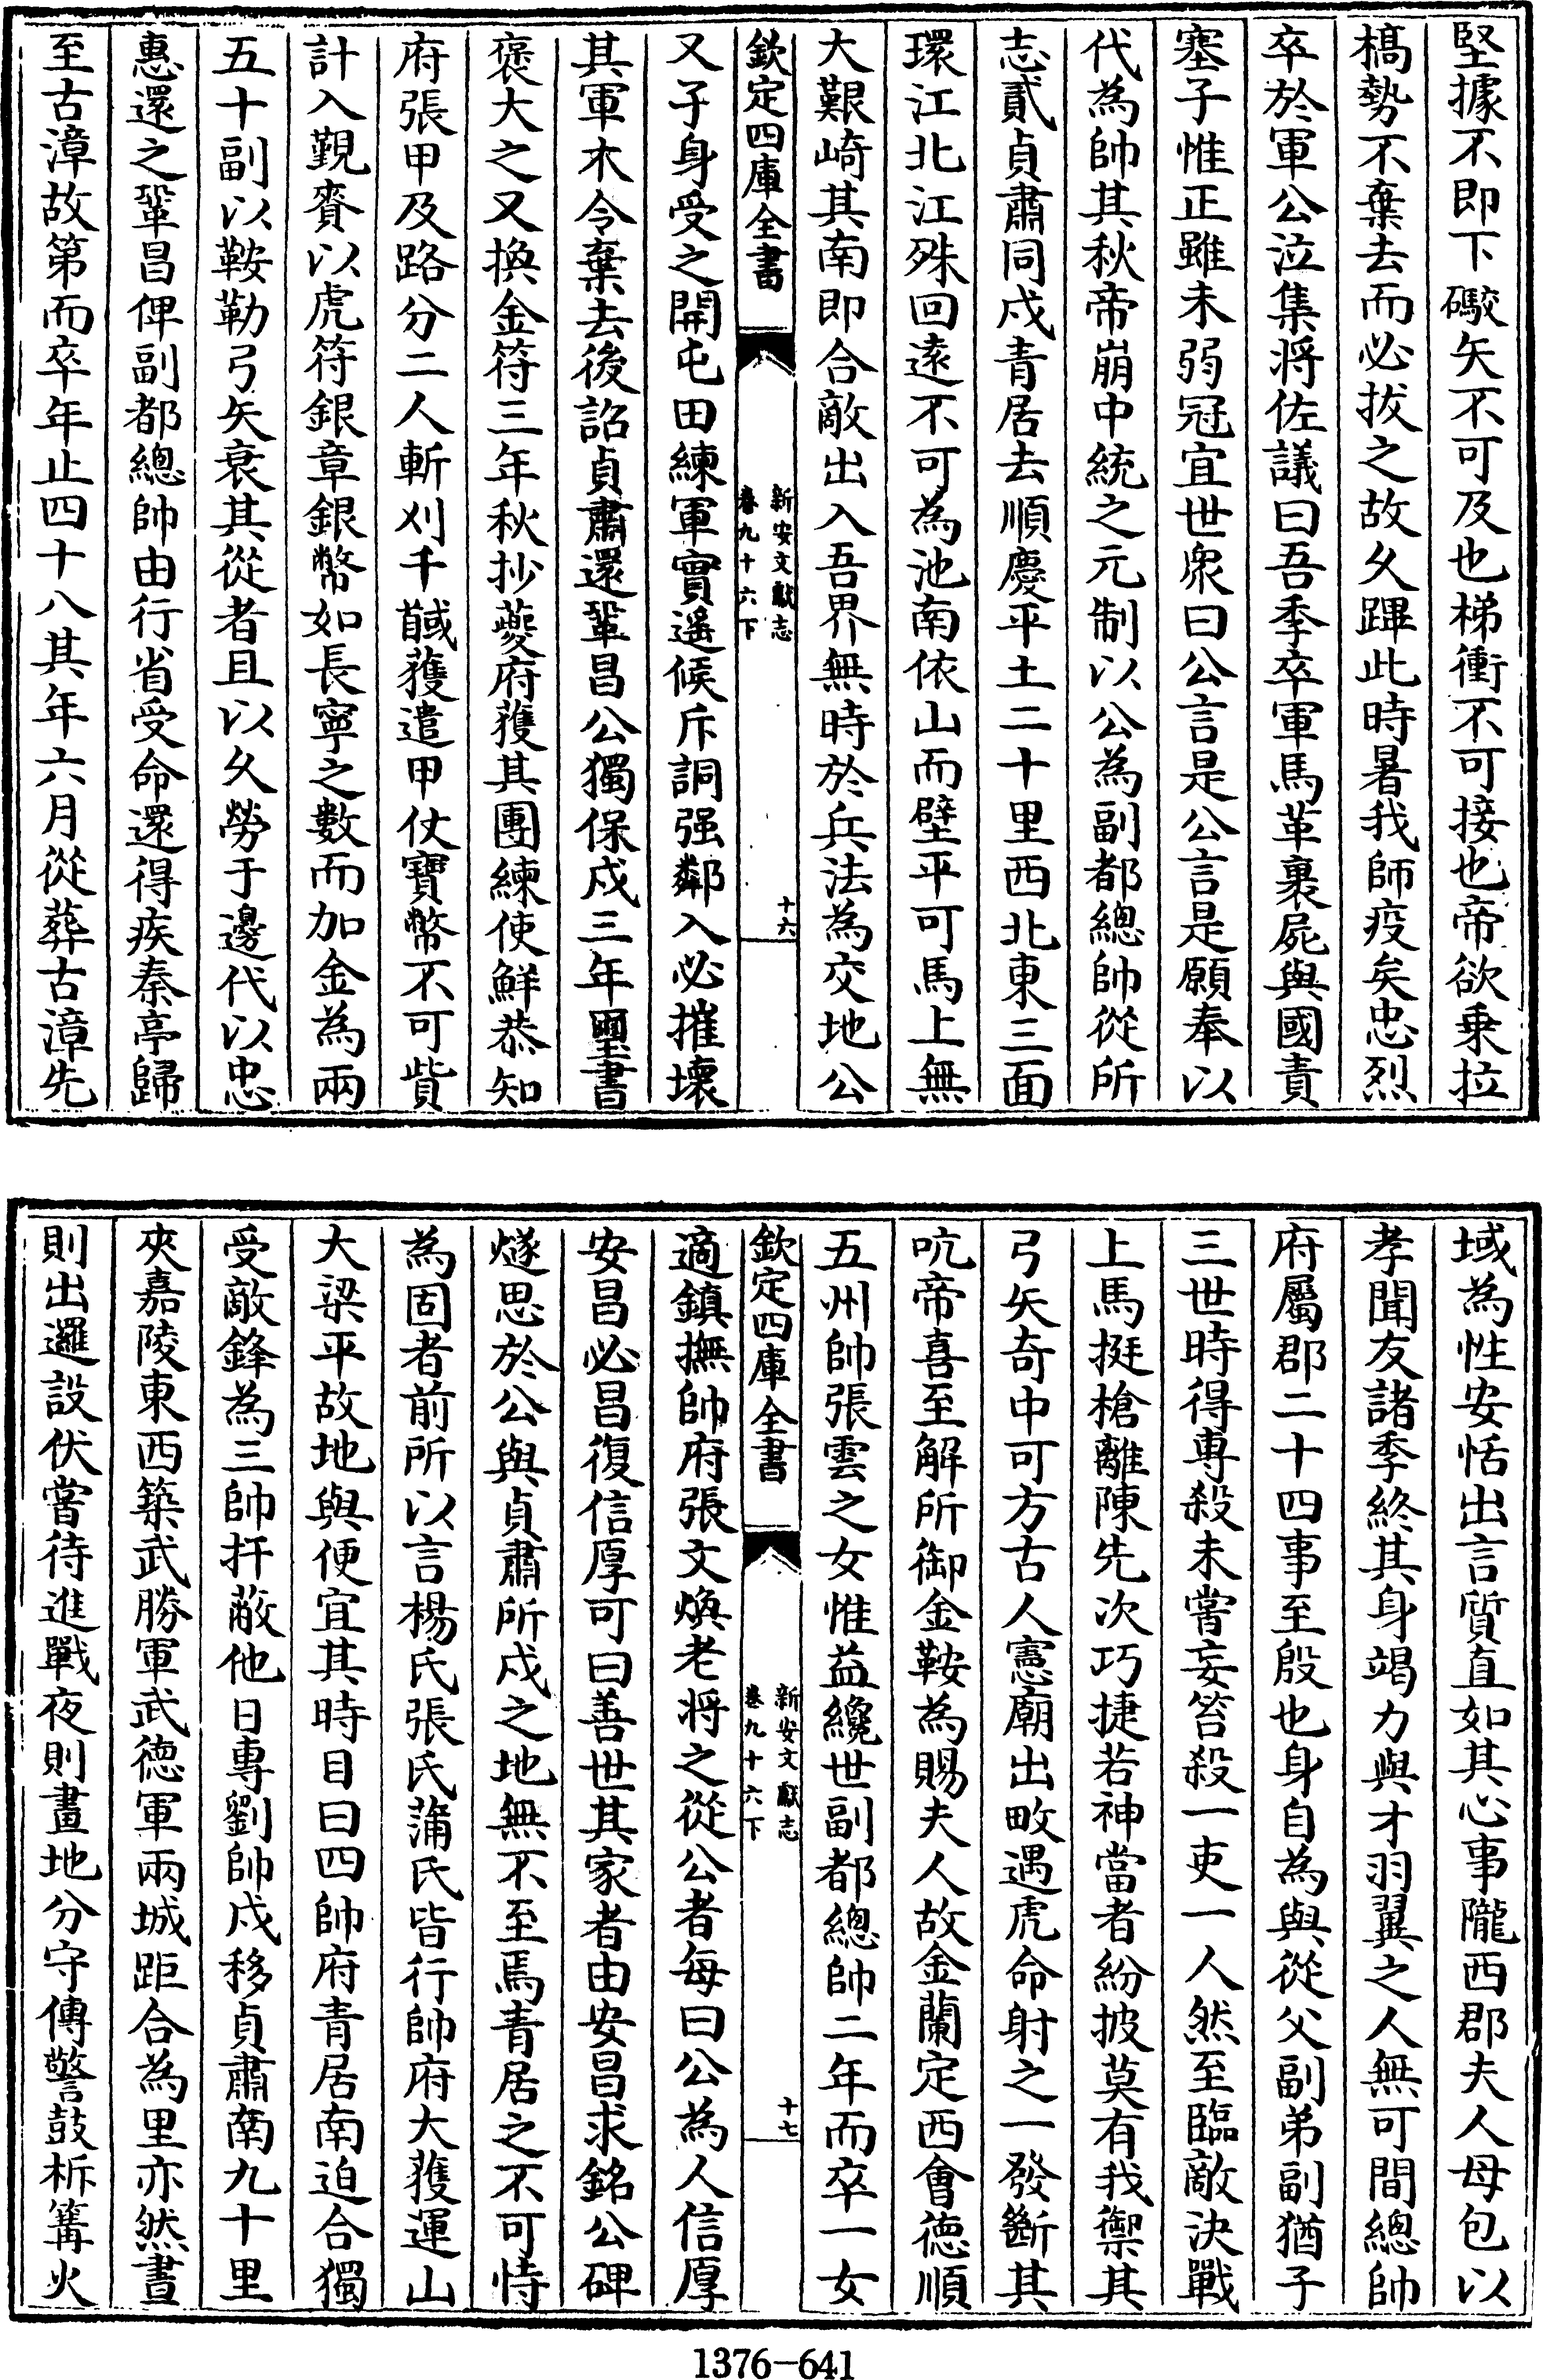 堅據不即下礮矢不可及也梯衝不可接也帝欲乗拉
槁勢不棄去而必拔之故久蹕此時暑我師疫矣忠烈
卒於軍公泣集将佐議曰吾季卒軍馬革裹屍與國責
塞子惟正雖未弱冠宜世衆曰公言是公言是願奉以
代為帥其秋帝崩中統之元制以公為副都總帥從所
志貳貞肅同戍青居去順慶平土二十里西北東三面
環江北江殊回逺不可為池南依山而壁平可馬上無
大艱崎其南即合敵出入吾界無時於兵法為交地公
欽定四庫全書
新安文獻志
卷九十六下
十六
又子身受之開屯田練軍實遥候斥詗强鄰入必摧壊
其軍木令棄去後詔貞肅還鞏昌公獨保戍三年璽書
褒大之又換金符三年秋抄夔府獲其團練使鮮恭知
府張甲及路分二人斬刈千馘獲遣甲仗寶幣不可貲
計入覲賚以虎符銀章銀幣如長寧之數而加金為兩
五十副以鞍勒弓矢衰其從者且以久勞于邊代以忠
惠還之鞏昌俾副都總帥由行省受命還得疾秦亭歸
至古漳故第而卒年止四十八其年六月從葬古漳先
域為性安恬出言質直如其心事隴西郡夫人母包以
孝聞友諸季終其身竭力與才羽翼之人無可間總帥
府屬郡二十四事至殷也身自為與從父副弟副猶子
三世時得専殺未嘗妄笞殺一吏一人然至臨敵決戰
上馬挺槍離陳先次巧捷若神當者紛披莫有我禦其
弓矢奇中可方古人憲廟出畋遇虎命射之一發斷其
吭帝喜至解所御金鞍為賜夫人故金蘭定西會徳順
五州帥張雲之女惟益纔世副都總帥二年而卒一女
欽定四庫全書
新安文獻志
卷九十六下
十七
適鎮撫帥府張文煥老将之從公者每曰公為人信厚
安昌必昌復信厚可曰善世其家者由安昌求銘公碑
燧思於公與貞肅所戍之地無不至焉青居之不可恃
為固者前所以言楊氏張氏蒲氏皆行帥府大獲運山
大梁平故地與便宜其時目曰四帥府青居南迫合獨
受敵鋒為三帥扞蔽他日專劉帥戍移貞肅南九十里
夾嘉陵東西築武勝軍武徳軍兩城距合為里亦然晝
則出邏設伏嘗待進戰夜則畫地分守傳警鼓柝篝火
1376-641